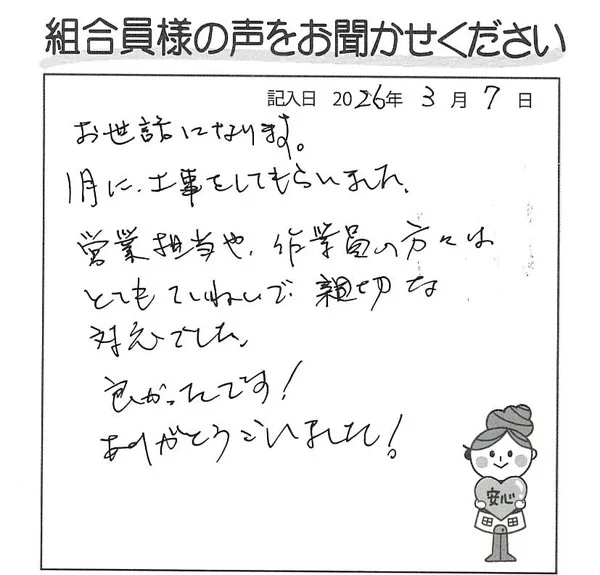 組合員様の声をお聞かせください
記入日 2026年 3月 7日
お世話になります。
1月に、工事をしてもらいました。
営業担当や、作業員の方々は
とてもていねいで親切な
対応でした。
良かったです！
ありがとうございました！
安心